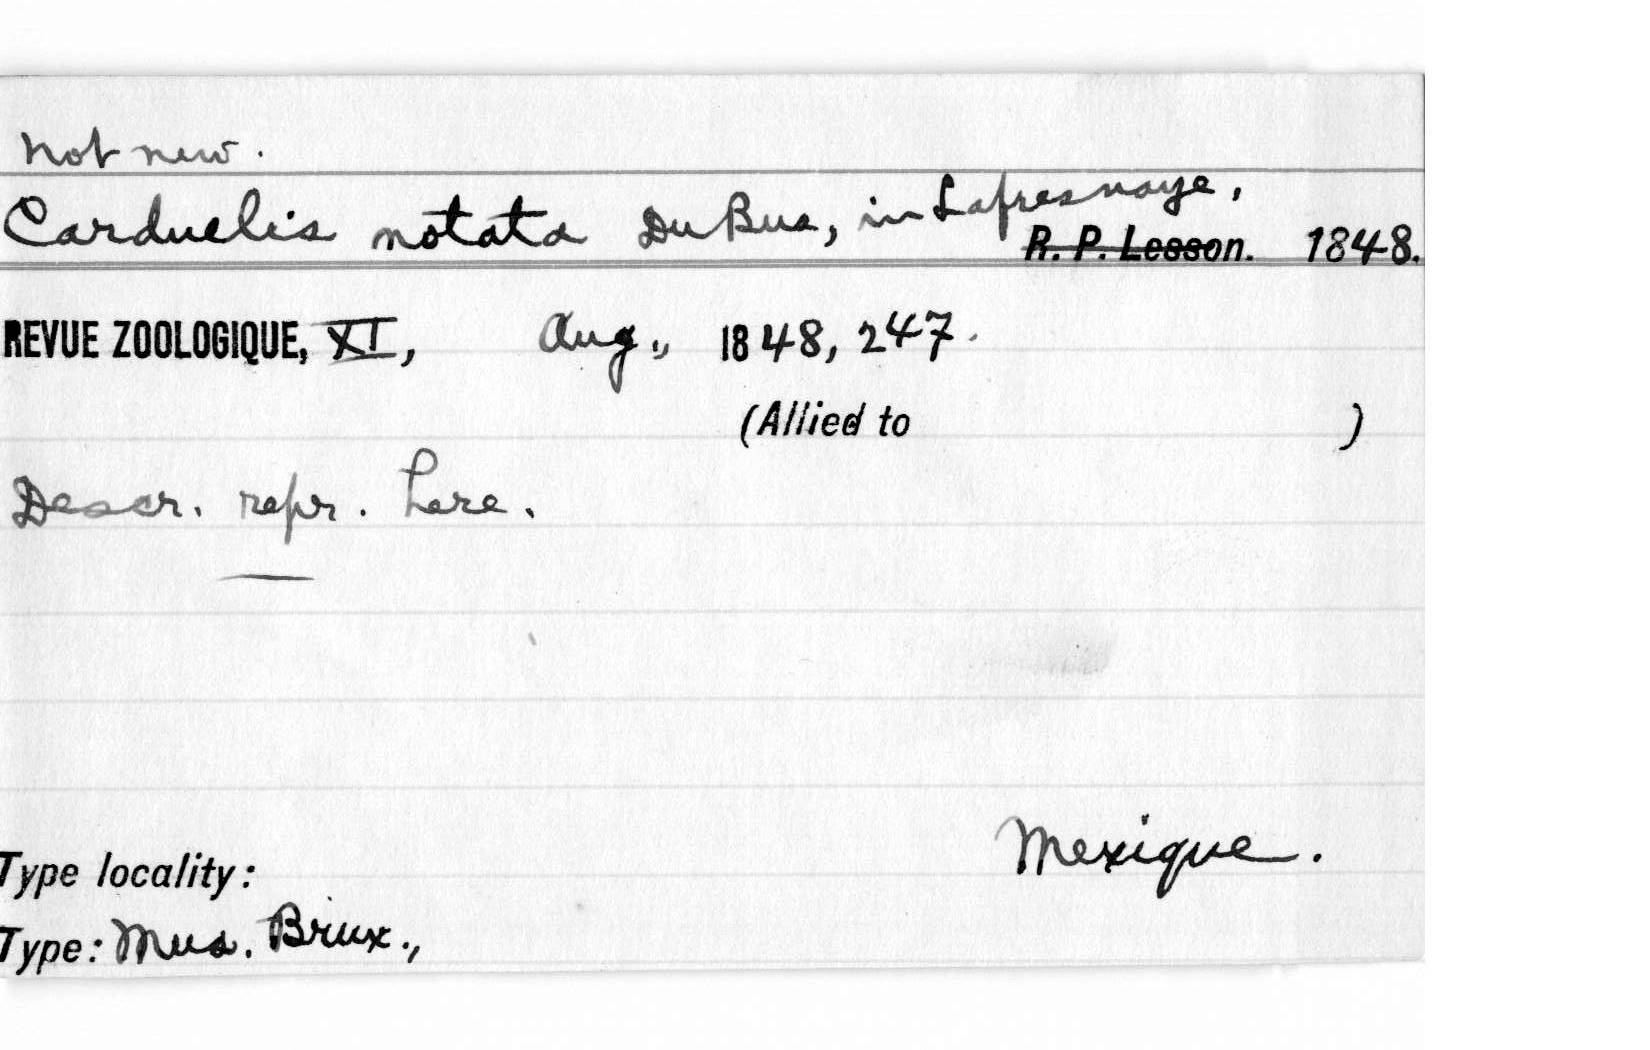 Not new.
Carduelis notata Du Bus, in Lafresnaye,
R. P. Lesson. 1848.
REVUE ZOOLOGIQUE, XI, Aug., 1848, 247.
(Allied to )
Descr. repr. here.
Mexique.
Type locality:
Type: Mus. Brux.,